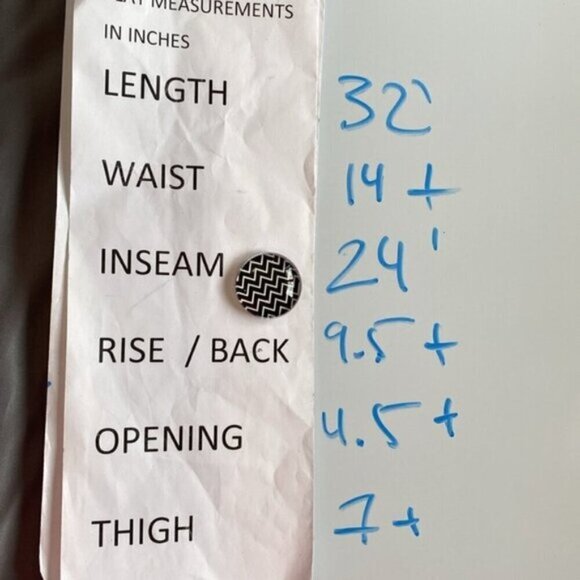 MEASUREMENTS
IN INCHES
LENGTH 32'
WAIST 14 +
INSEAM 24'
RISE / BACK 9.5 +
OPENING 4.5 +
THIGH 7 +